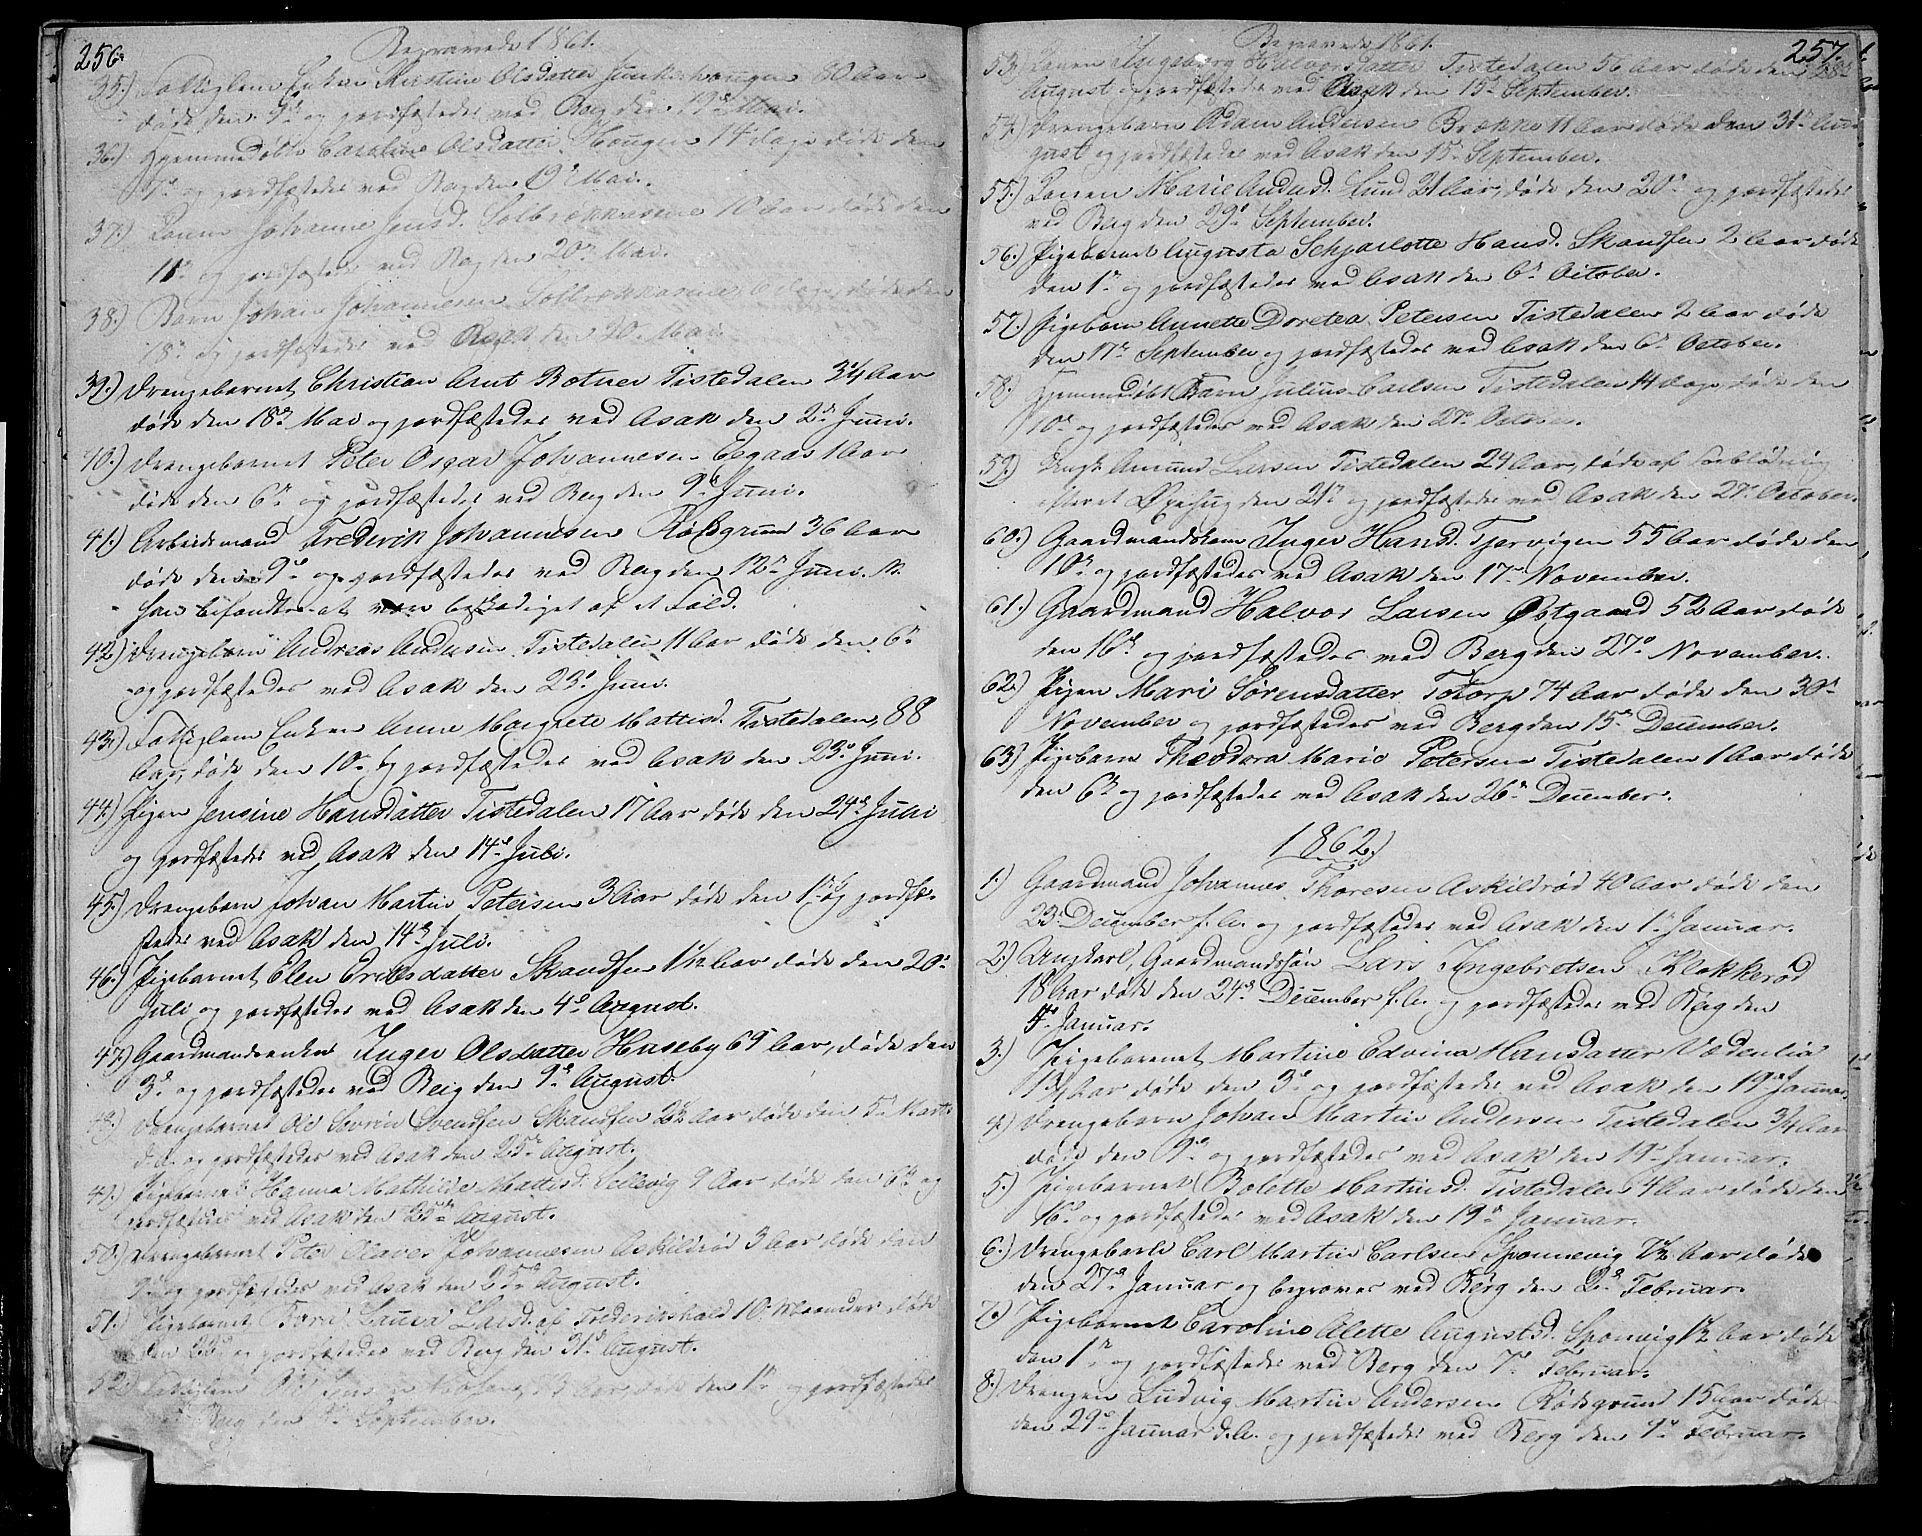 256.
Begravede 1861.
35.) Fattiglem Enken Kirstine Olsdatter 80 Aar
døde den 9de og jordfæstedes ved Berg den 19de Mai.
36.) Hjemmedøbte Caroline Olsdatter Hougen 14 dage døde den
og jordfæstedes ved Berg den 19de Mai.
37.) Konen Johanne Jensd. Solbrækkesene Aar døde den
11te og jordfæstedes ved Berg den 20de Mai.
38.) Barn Johan Johannesen 6 dage, døde den
18de og jordfæstedes ved Asak den 20de Mai.
39.) Drengebarnet Christian Arnt Botner Tistedalen 3/4 Aar
døde den 18de Mai og jordfæstedes ved Asak den 2den Juni.
40.) Drengebarnet Peter Oscar Johannesen Eegaas 1 Aar
døde den 6te og jordfæstedes ved Berg den 9de Juni.
41.) Arbeidsmand Frederik Johannesen Rødsgrund 36 Aar
døde den 9de og jordfæstedes ved Berg den 12te Juni. N.
han befandtes at være beskadiget af et Fald.
42.) Drengebarn Andreas Andersen Tistedalen 11 Aar døde den 6te
og jordfæstedes ved Asak den 23de Juni.
43.) Fattiglem Enken Anne Margrete Mattisd. Tistedalen, 88
Aar, døde den 10de og jordfæstedes ved Asak den 23de Juni.
44.) Pigen Jensine Hansdatter Tistedalen 17 Aar døde den 24de Juni
og jordfæstedes ved Asak den 14de Juli.
45.) Drengebarn Johan Martin Petersen 3 Aar døde den 1ste og jordfæ-
stedes ved Asak den 14de Juli.
46.) Pigebarnet Elen Eriksdatter Skandsen 1 1/2 Aar døde den 20de
Juli og jordfæstedes ved Asak den 4de August.
47.) Gaardmandsenken Inger Olsdatter Huseby 69 Aar, døde den
3de og jordfæstedes ved Berg den 9de August.
48.) Drengebarnet Ole Severin Svendsen Skandsen 2 1/2 Aar døde den 5te Marts
d.A. og jordfæstedes ved Asak den 25de August.
49.) Pigebarnet Hanna Mathilde Mattisd. 9 Aar døde den 6te og
jordfæstedes ved Asak den 25de August.
50.) Drengebarnet Peter Olaves Johannesen Askildrød 3 Aar døde den
9de og jordfæstedes ved Asak den 25de August.
51.) Pigebarnet Laura Larsd. af Frederikshald 10 Maaneder døde
den 22de og jordfæstedes ved Berg den 31de August.
52.) Fattiglem Aar, døde den og jordfæstedes
Berg den September.
257.
Begravede 1861.
53.) Konen Ingeborg Halvorsdatter Tistedalen 56 Aar døde den 28de
August og jordfæstedes ved Asak den 15de September.
54.) Drengebarn Adam Andersen Brække 11 Aar døde den 31te Au-
gust og jordfæstedes ved Asak den 15de September.
55.) Konen Marie Andersd. Lund 21 Aar, døde den 20de og jordfæstedes
ved Berg den 29de September.
56.) Pigebarnet Augusta Schjarlotte Hansd. Skandsen 2 Aar døde
den 1ste og jordfæstedes ved Asak den 6te October.
57.) Pigebarn Annette Doretea Petersen Tistedalen 2 Aar døde
den 17de September og jordfæstedes ved Asak den 6te October.
58.) Hjemmedøbt Barn Julius Carlsen Tistedalen 14 dage, døde den
10de og jordfæstedes ved Asak den 27de October.
59.) Ungk. Amund Larsen Tistedalen 24 Aar, døde af Forblødning
efter et Øxehug den 21de og jordfæstedes ved Asak den 27de October.
60.) Gaardmandskone Inger Hansd. Tjervigen 55 Aar døde den
10de og jordfæstedes ved Asak den 17de November.
61.) Gaardmand Halvor Larsen Østgaard 52 Aar døde
den 16de og jordfæstedes ved Berg den 27de November.
62.) Pigen Mari Sørensdatter Totorp 74 Aar døde den 30te
November og jordfæstedes ved Berg den 15de December.
63.) Pigebarn Theodora Marie Petersen Tistedalen 1 Aar døde
den 6te og jordfæstedes ved Asak den 26de December.
1862.)
1.) Gaardmand Johannes Thoresen Askildrød 40 Aar døde den
23de December f.A. og jordfæstedes ved Asak den 1ste Januar.
2.) Ungkarl, Gaardmandssøn Lars Ingebretsen Klokkerød
18 Aar døde den 24de December f.A. og jordfæstedes ved Berg den
4de Januar.
3.) Pigebarnet Martine Edvina Hansdatter Vedenlia
1 3/4 Aar døde den 3de og jordfæstedes ved Asak den 19de Januar.
4.) Drengebarn Johan Martin Andersen Tistedalen 3/4 Aar
døde den 9de og jordfæstedes ved Asak den 19de Januar.
5.) Pigebarnet Bolette Martinsd. Tistedalen 4 Aar døde den
16de og jordfæstedes ved Asak den 19de Januar.
6.) Drengebarn Carl Martin Carlsen Sponnevig 1 1/2 Aar døde
den 27de Januar og begraves ved Berg den 2den Februar.
7.) Pigebarnet Caroline Alette Augustsd. Sponvig 1 1/2 Aar døde
den 1ste og jordfæstedes ved Berg den 7de Februar.
8.) Drengen Ludvig Martin Andersen Rødsgrund 15 Aar døde
den 29de Januar d.A. og jordfæstedes ved Berg den 9de Februar.